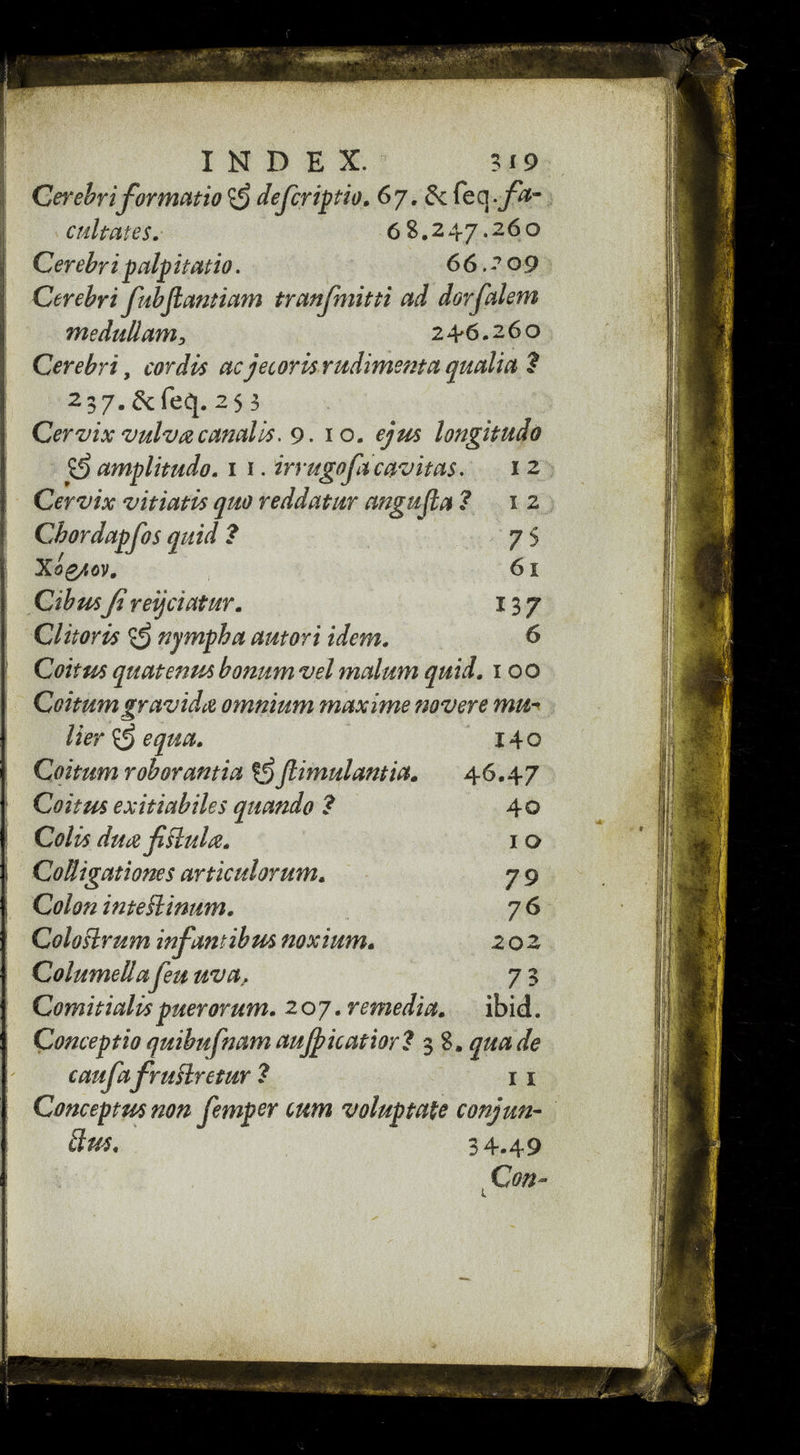 INDEX. 319
Cerebri formatio & deſcriptio. 67. & ſeq. fa-
cultates. 68.247.260
Cerebri palpitatio. 66.209
Cerebri ſubſtantiam tranſmitti ad dorſalem
medullam, 246.260
Cerebri, cordis ac jecoris rudimenta qualia?
237. & ſeq. 253
Cervix vulvæ canalis. 9. 10. ejus longitudo
& amplitudo. 11. irrugoſa cavitas. 12
Cervix vitiatis quo reddatur anguſta? 12
Chordapſos quid? 75
Χόριον. 61
Cibus ſi reijciatur. 137
Clitoris & nympha autori idem. 6
Coitus quatenus bonum vel malum quid. 100
Coitum gravidæ omnium maxime novere mu-
lier & equa. 140
Coitum roborantia & ſtimulantia. 46.47
Coitus exitiabiles quando? 40
Colis duæ fiſtulæ. 10
Colligationes articulorum. 79
Colon inteſtinum. 76
Coloſtrum infantibus noxium. 202
Columella ſeu uva, 73
Comitialis puerorum. 207. remedia. ibid.
Conceptio quibuſnam auſpicatior? 38. qua de
cauſa fruſtretur? 11
Conceptus non ſemper cum voluptate conjun-
ctus. 34.49
Con-